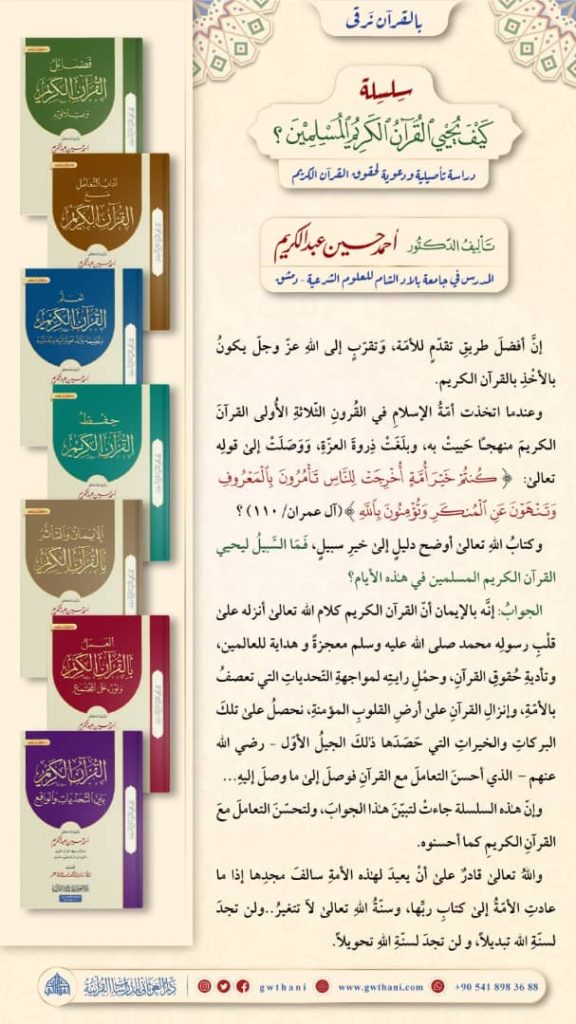 بالقرآن نَرقى
سِلسِلة
كَيْفَ يُحْيِي ٱلْقُرْآنُ ٱلْكَرِيمُ ٱلْمُسْلِمِيْنَ ؟
دراسة تأصيلية ودعوية لحقوق القرآن الكريم
تأليف الدّكتُور أحمد حسين عبدالكريم
المدرس في جامعة بلاد الشام للعلوم الشرعية - دمشق
إنَّ أفضلَ طريقِ تقدّمٍ للأمّة، وَتقرّبٍ إلى اللهِ عزّ وجلّ يكونُ
بالأخْذِ بالقرآن الكريم.
وعندما اتخذت أمّةُ الإسلامِ في القُرونِ الثّلاثةِ الأُولى القرآنَ
الكريمَ منهجًا حَييتْ به، وبلَغَتْ ذِروةَ العزّةِ، وَوَصَلَتْ إلىٰ قولِه
تعالىٰ: ﴿ كُنتُمْ خَيْرَ أُمَّةٍ أُخْرِجَتْ لِلنَّاسِ تَأْمُرُونَ بِٱلْمَعْرُوفِ
وَتَنْهَوْنَ عَنِ ٱلْمُنكَرِ وَتُؤْمِنُونَ بِٱللَّهِ ﴾(آل عمران/ ١١٠) ؟
وكتابُ اللهِ تعالىٰ أوضح دليلٍ إلىٰ خيرِ سبيلٍ، فَمَا السَّبيلُ ليحيي
القرآن الكريم المسلمين في هذه الأيام؟
الجوابُ: إنَّه بالإيمان أنّ القرآن الكريم كلام الله تعالىٰ أنزله علىٰ
قلْبِ رسولِه محمد صلى الله عليه وسلم معجزةً و هداية للعالمين،
وتأديةِ حُقوقِ القرآنِ، وحمْلِ رايتِه لمواجهةِ التّحدياتِ التي تعصفُ
بالأمّةِ، وإنزالِ القرآنِ علىٰ أرضِ القلوبِ المؤمنةِ، نحصلُ علىٰ تلكَ
البركاتِ والخيراتِ التي حَصَدَها ذلكَ الجيلُ الأوّل - رضي الله
عنهم - الذي أحسنَ التعاملَ مع القرآنِ فوصلَ إلىٰ ما وصلَ إليهِ...
وإنّ هذه السلسلة جاءتْ لتبيّنَ هذا الجوابَ، ولتحسّنَ التعاملَ معَ
القرآنِ الكريمِ كما أحسنوه.
واللهُ تعالىٰ قادرٌ علىٰ أنْ يعيدَ لهذه الأمةِ سالفَ مجدِها إذا ما
عادتِ الأمّةُ إلىٰ كتابِ ربِّها، وسنّةُ اللهِ تعالىٰ لاَ تتغيرُ..ولن تجدَ
لسنّةِ الله تبديلاً، و لن تجدَ لسنّةِ اللهِ تحويلاً.
فضائل
القرآن الكريم
آداب التعامل
مع
القرآن الكريم
تعلم
القرآن الكريم
حفظ
القرآن الكريم
الإيمان والتأثر
بالقرآن الكريم
العمل
بالقرآن الكريم
القرآن الكريم
بين التحديات والواقع
دار الغوثاني للدراسات القرآنية
gwthani
www.gwthani.com
+90 541 898 36 88